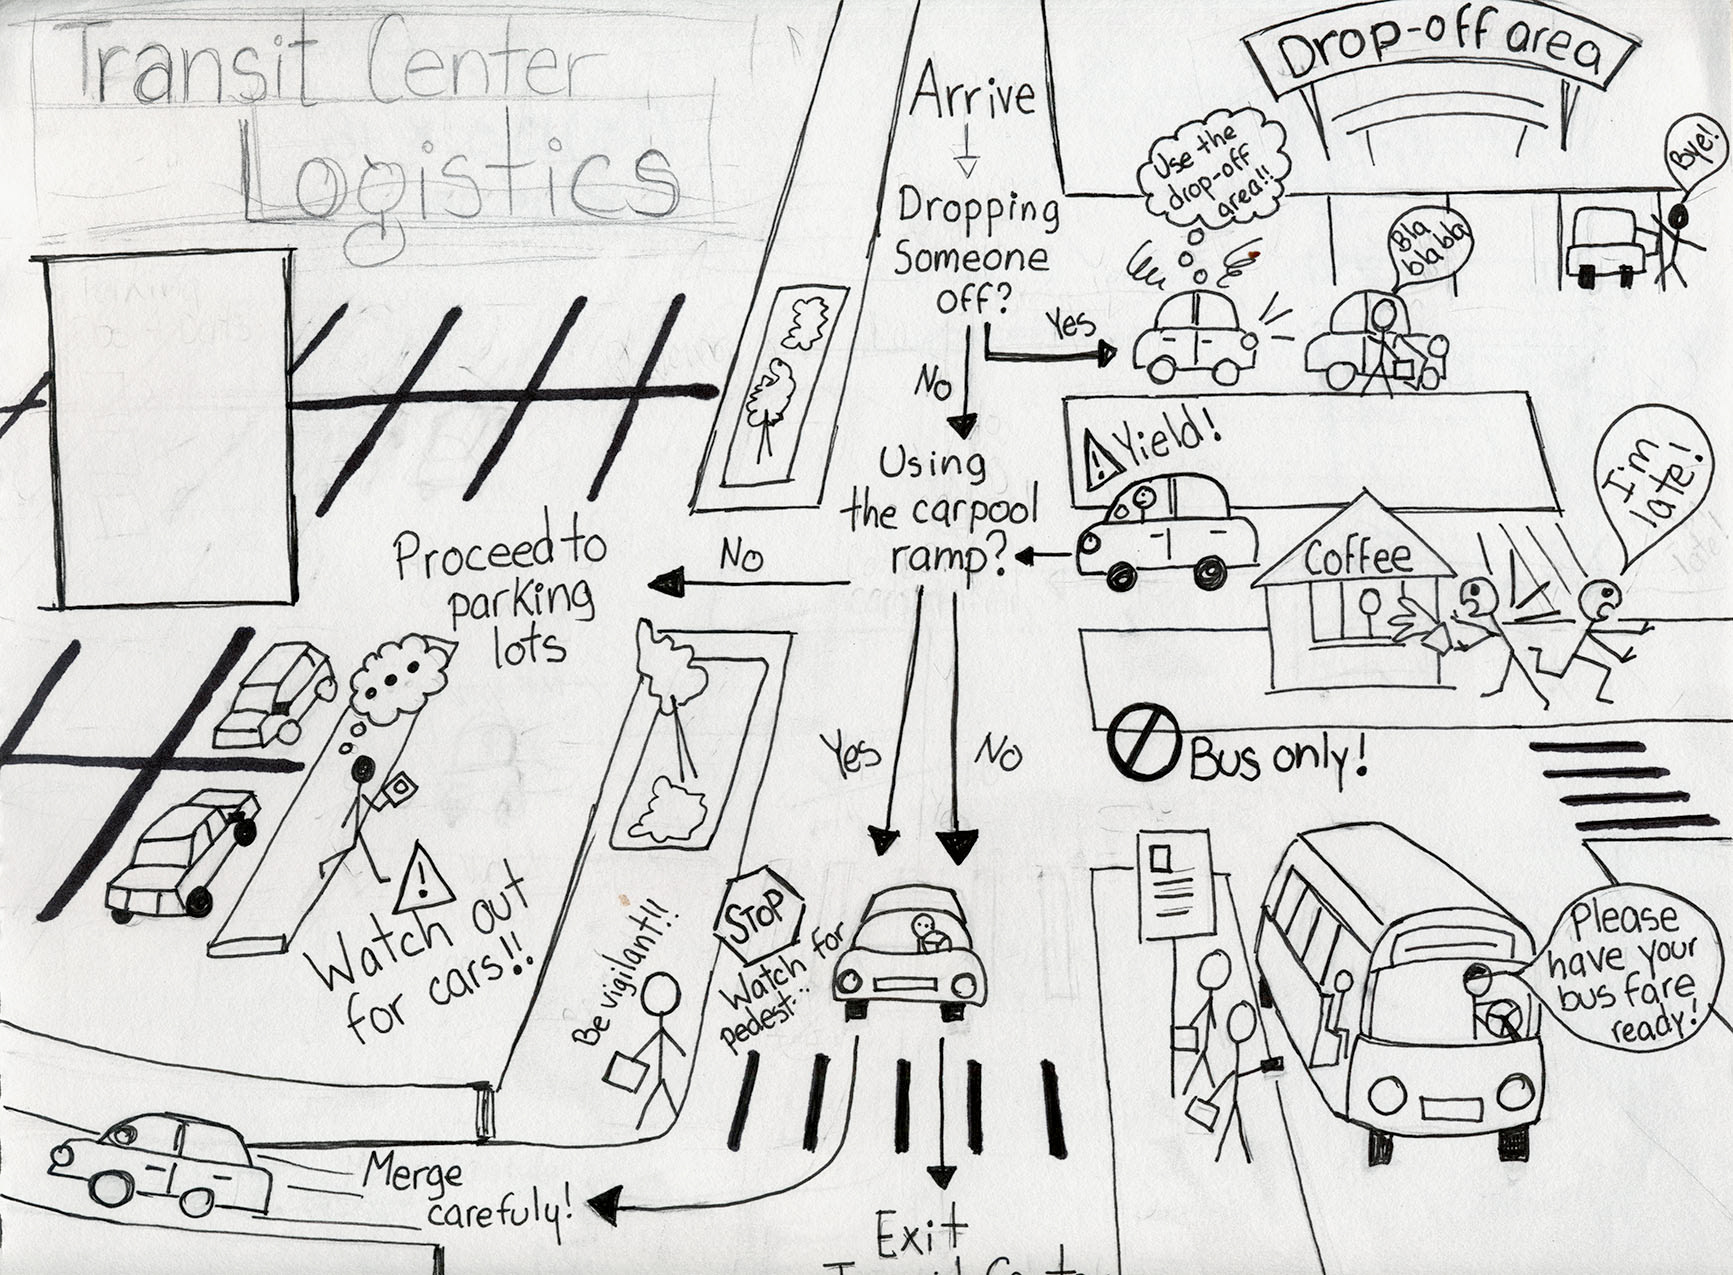 Transit Center
Logistics
Arrive
Dropping
Someone
off?
Yes
No
Drop-off area
Use the
drop-off
area!!
Bla
bla bla
Bye!
Using
the carpool
ramp?
No
Yield!
Proceed to
parking
lots
Coffee
I'm
late!
Yes
No
Bus only!
Watch out
for cars!!
Be vigilant!!
STOP
Watch for
pedest...
Please
have your
bus fare
ready!
Merge
carefuly!
Exit